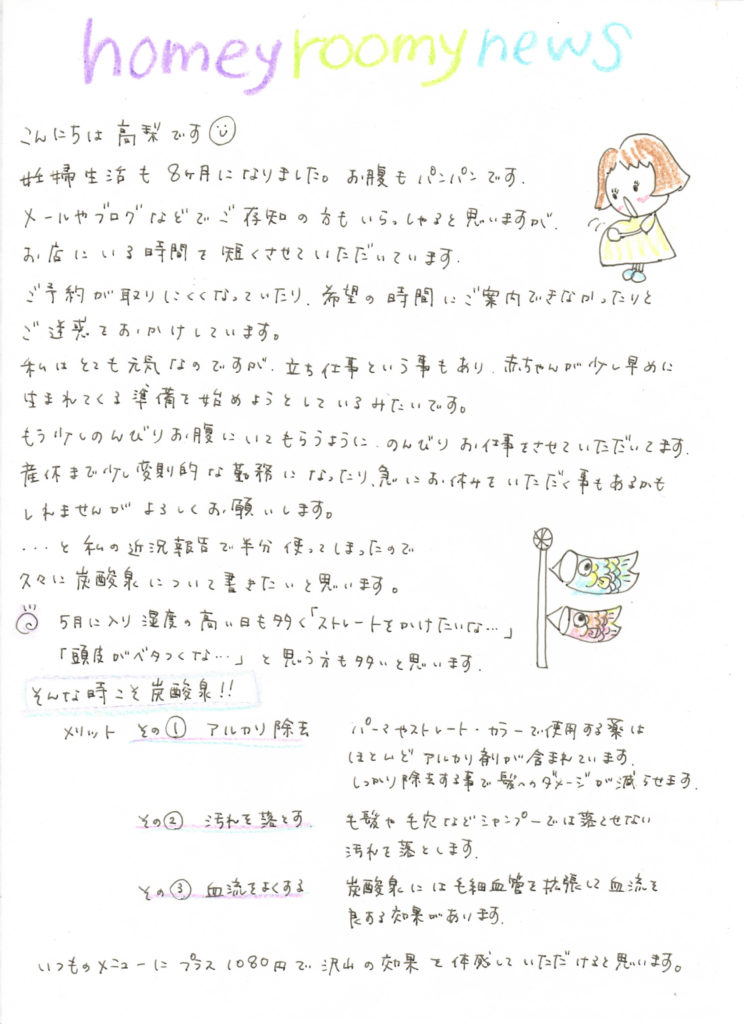 homey roomy news
こんにちは 高梨です
妊婦生活も 8ヶ月になりました。お腹もパンパンです.
メールやブログなどでご存知の方もいらっしゃると思いますが.
お店にいる時間を短くさせていただいています.
ご予約が取りにくくなっていたり、希望の時間にご案内できなかったりと
ご迷惑をおかけしています。
私はとても元気なのですが、立ち仕事という事もあり、赤ちゃんが少し早めに
生まれてくる準備を始めようとしているみたいです。
もう少しのんびりお腹にいてもらうように、のんびりお仕事をさせていただいてます.
産休まで少し変則的な勤務になったり、急にお休みをいただく事もあるかも
しれませんがよろしくお願いします。
...と 私の近況報告で半分使ってしまったので
久々に炭酸泉について書きたいと思います。
5月に入り 湿度の高い日も多く「ストレートをかけたいな…」
「頭皮がベタつくな…」と思う方も多いと思います.
そんな時こそ炭酸泉!!
メリット その① アルカリ除去 パーマやストレート・カラーで使用する薬は
ほとんどアルカリ剤が含まれています.
しっかり除去する事で髪へのダメージが減らせます.
その② 汚れを落とす 毛髪や毛穴などシャンプーでは落とせない
汚れを落とします.
その③ 血流をよくする 炭酸泉には毛細血管を拡張して血流を
良する効果があります.
いつものメニューにプラス1080円で沢山の効果を体感していただけると思います。